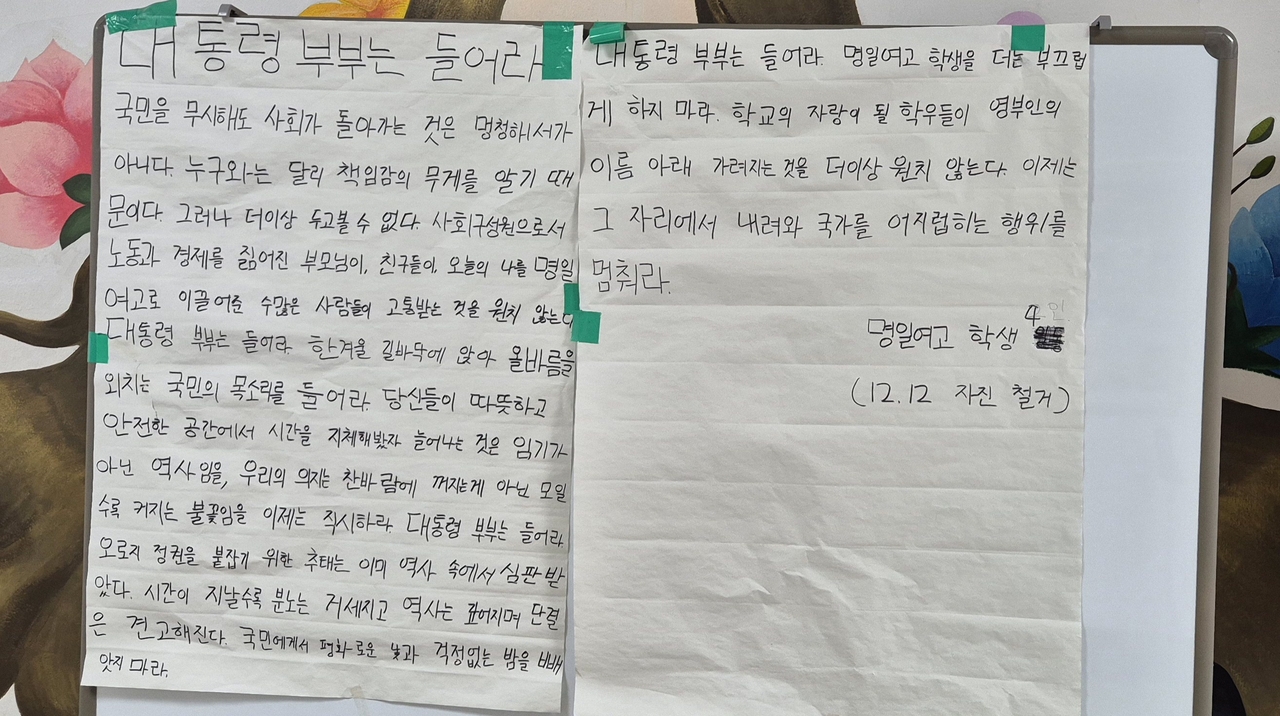 대통령 부부는 들어라
국민을 무시해도 사회가 돌아가는 것은 멍청해서가
아니다. 누구와는 달리 책임감의 무게를 알기 때
문이다. 그러나 더이상 두고볼 수 없다. 사회구성원으로서
노동과 경제를 짊어진 부모님이, 친구들이, 오늘의 나를 명일
여고로 이끌어준 수많은 사람들이 고통받는 것을 원치 않는다
대통령 부부는 들어라. 한겨울 길바닥에 앉아 올바름을
외치는 국민의 목소리를 들어라. 당신들이 따뜻하고
안전한 공간에서 시간을 지체해봤자 늘어나는 것은 임기가
아닌 역사임을, 우리의 의지는 찬바람에 꺼지는게 아닌 모일
수록 커지는 불꽃임을 이제는 직시하라. 대통령 부부는 들어라.
오로지 정권을 붙잡기 위한 추태는 이미 역사 속에서 심판 받
았다. 시간이 지날수록 분노는 거세지고 역사는 깊어지며 단결
은 견고해진다. 국민에게서 평화로운 낮과 걱정없는 밤을 빼
앗지 마라.
대통령 부부는 들어라. 명일여고 학생을 더는 부끄럽
게 하지 마라. 학교의 자랑이 될 학우들이 영부인의
이름 아래 가려지는 것을 더이상 원치 않는다. 이제는
그 자리에서 내려와 국가를 어지럽히는 행위를
멈춰라.
명일여고 학생 4인
(12.12 자진 철거)